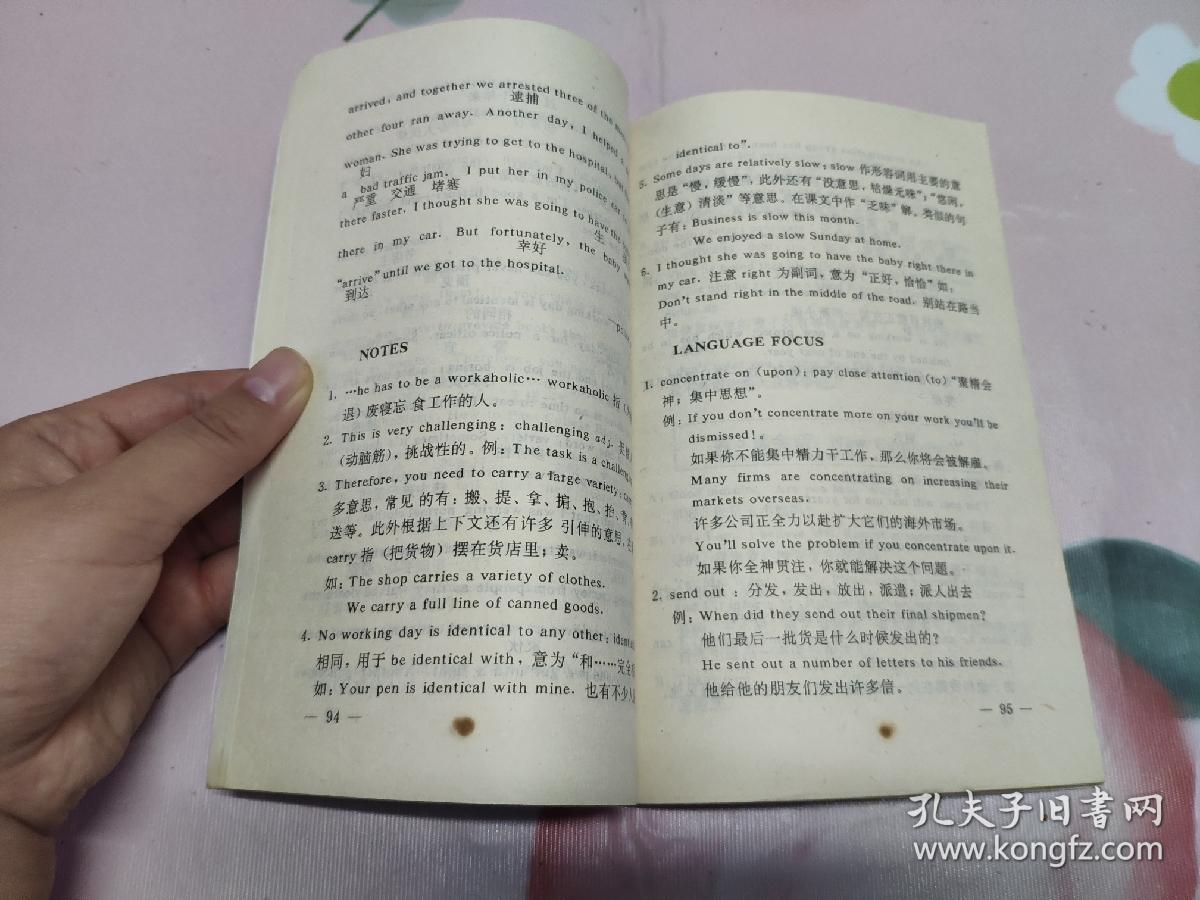 arrived, and together we arrested three of the men
逮捕
other four ran away. Another day, I helped a
woman. She was trying to get to the hospital, but
妇
a bad traffic jam. I put her in my police car
严重 交通 堵塞
there faster. I thought she was going to have the
生
there in my car. But fortunately, the baby
幸好
"arrive" until we got to the hospital.
到达
NOTES
1. …he has to be a workaholic… workaholic 指
退) 废寝忘食工作的人。
2. This is very challenging: challenging adj.
(动脑筋), 挑战性的。例: The task is a
3. Therefore, you need to carry a large variety:
多意思, 常见的有: 搬、提、拿、掮、抱、抬、
送等。此外根据上下文还有许多引伸的意思,
carry 指 (把货物) 摆在货店里; 卖。
如: The shop carries a variety of clothes.
We carry a full line of canned goods.
4. No working day is identical to any other:
相同, 用于 be identical with, 意为 "和……完全
如: Your pen is identical with mine. 也有不少人
— 94 —
identical to".
5. Some days are relatively slow: slow 作形容词用主要的意
思是 "慢, 缓慢", 此外还有 "没意思, 枯燥无味"; "悠闲,
(生意) 清淡" 等意思。在课文中作 "乏味" 解。类似的句
子有: Business is slow this month.
We enjoyed a slow Sunday at home.
6. I thought she was going to have the baby right there in
my car. 注意 right 为副词, 意为 "正好, 恰恰" 如,
Don't stand right in the middle of the road. 别站在路当
中。
LANGUAGE FOCUS
1. concentrate on (upon): pay close attention (to) "聚精会
神; 集中思想"。
例: If you don't concentrate more on your work you'll be
dismissed!。
如果你不能集中精力干工作, 那么你将会被解雇。
Many firms are concentrating on increasing their
markets overseas.
许多公司正全力以赴扩大它们的海外市场。
You'll solve the problem if you concentrate upon it.
如果你全神贯注, 你就能解决这个问题。
2. send out : 分发, 发出, 放出, 派遣; 派人出去
例: When did they send out their final shipmen?
他们最后一批货是什么时候发出的?
He sent out a number of letters to his friends.
他给他的朋友们发出许多信。
— 95 —
孔夫子旧书网
www.kongfz.com